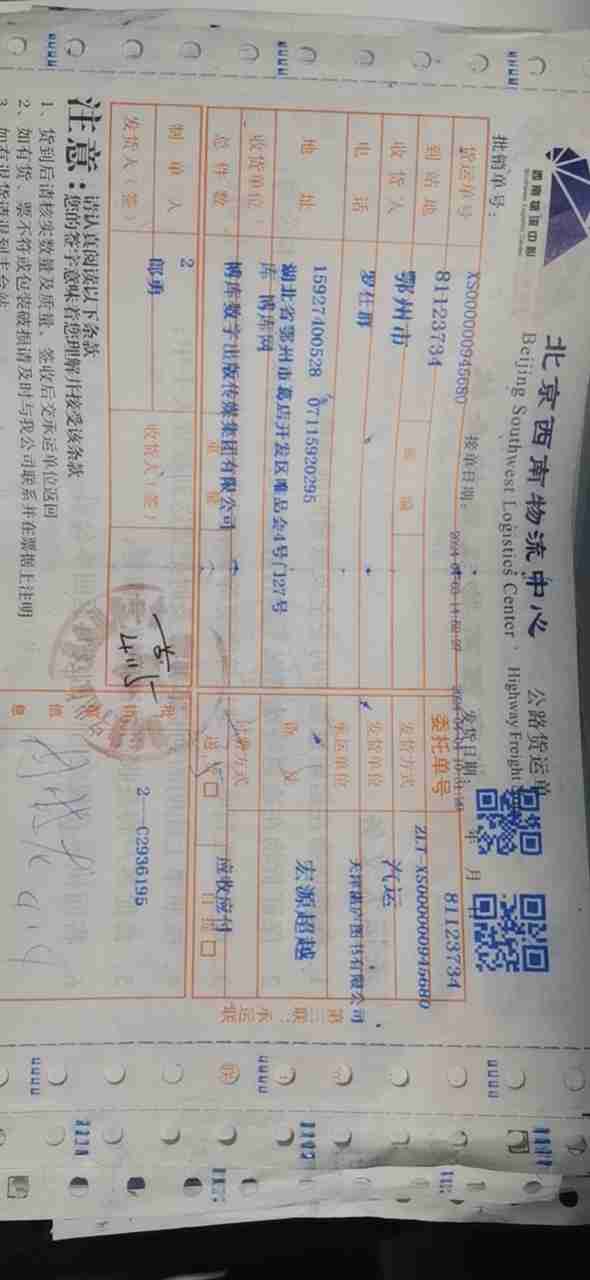 西南物流中心
Southwest Logistics Center
北京西南物流中心
Beijing Southwest Logistics Center
公路货运单
Highway Freight
批销单号：
接单日期：
发货日期：
年 月
货运单号 XS0000000945680
81123734
委托单号 81123734
ZLT-XS0000000945680
到站地 鄂州市 邮编
发货方式 汽运
收货人 罗仕群
发货单位
电话 15927400528 07115920295
承运单位 宏源超越
地址 湖北省鄂州市葛店开发区唯品会4号门27号
库 博库网
收货单位 博库数字出版传媒集团有限公司
应收应付
总件数 2
重量
送 □ 自提 □
制单人 郎勇
收货人（签）
2---C2936195
发货人（签）
第三联：承运联
注意：
请认真阅读以下条款
您的签字意味着您理解并接受该条款
1、货到后请核实数量及质量，签收后交承运单位返回
2、如有货、票不符或包装破损请及时与我公司联系并在票据上注明